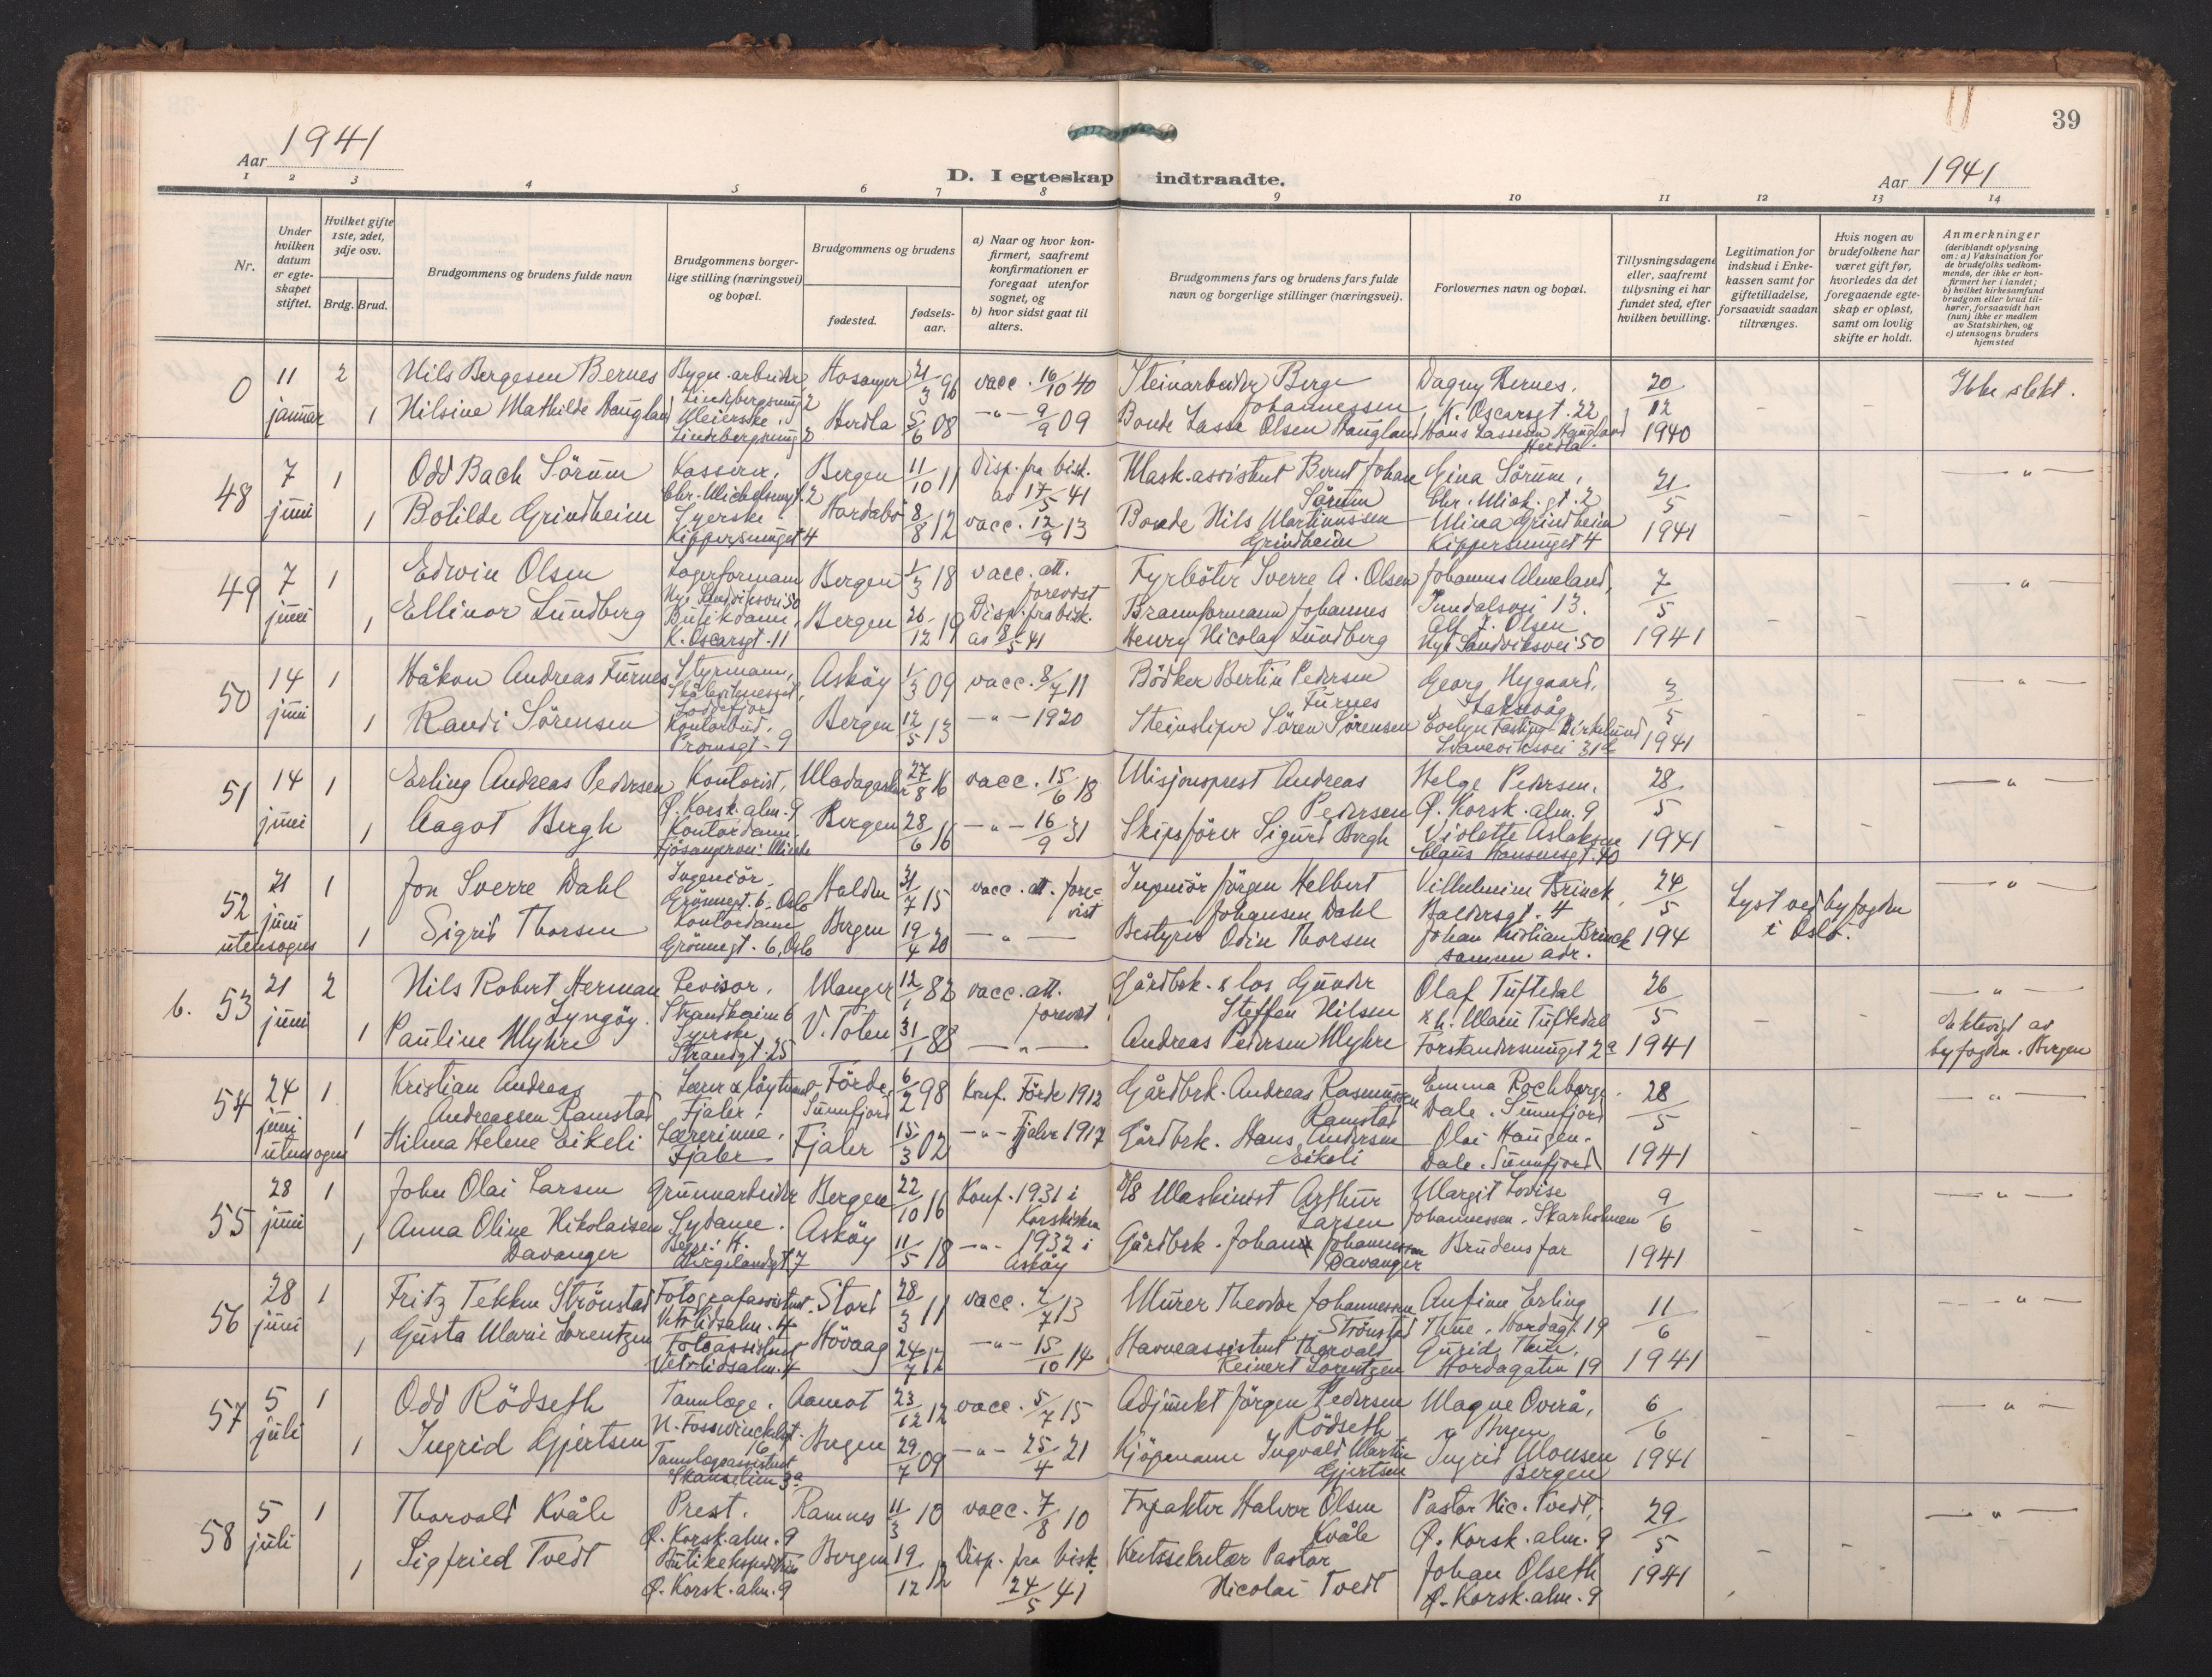 39
Aar 1941
D. I egteskap indtraadte.
Aar 1941
1 2 3 4 5 6 7 8 9 10 11 12 13 14
Nr.
Under hvilken datum er egteskapet stiftet.
Hvilket gifte 1ste, 2det, 3dje osv.
Brdg. Brud.
Brudgommens og brudens fulde navn
Brudgommens borgerlige stilling (næringsvei) og bopæl.
Brudgommens og brudens
fødested.
fødselsaar.
a) Naar og hvor konfirmert, saafremt konfirmationen er foregaat utenfor sognet, og
b) hvor sidst gaat til alters.
Brudgommens fars og brudens fars fulde navn og borgerlige stillinger (næringsvei).
Forlovernes navn og bopæl.
Tillysningsdagene eller, saafremt tillysning ei har fundet sted, efter hvilken bevilling.
Legitimation for indskud i Enkekassen samt for giftetilladelse, forsaavidt saadan tiltrænges.
Hvis nogen av brudefolkene har været gift før, hvorledes da det foregaaende egteskap er opløst, samt om lovlig skifte er holdt.
Anmerkninger (deriblandt oplysning om: a) Vaksination for de brudefolks vedkommende, der ikke er konfirmert her i landet; b) hvilket kirkesamfund brudgom eller brud tilhører, forsaavidt han (hun) ikke er medlem av Statskirken, og c) utensogns bruders hjemsted
0 11 januar 2 Nils Bergesen Bernes Bygn.arbeider, Lindebergsmug 2 Hosanger 21/3 96 vacc. 16/10 40 Steinarbeider Berge Johannessen Dagny Bernes, K. Oscarsgt. 22 20/12 1940 - - Ikke slekt.
1 Nilsine Mathilde Haugland Meierske, Lindebergsmug 2 Herdla 5/6 08 -"- 9/9 09 Bonde Lasse Olsen Haugland Hans Lassesen Haugland Herdla.
48 7 juni 1 Odd Bach Sörum Kasserer, Chr. Michelsensgt. 2 Bergen 11/10 11 Disp. fra bisk. av 17/5 41 Mask.assistent Bernt Johan Sörum Gina Sörum, Chr. Mich. gt. 2 21/5 1941 - - -"-
1 Botilde Grindheim Syerske Kippersmuget 4 Hordabö 8/8 12 vacc. 12/9 13 Bonde Nils Martinussen Grindheim Mina Grindheim Kippersmuget 4
49 7 juni 1 Edwin Olsen Lagerformann Nye Sandviksvei 50 Bergen 1/3 18 vacc. att. forevist Fyrböter Sverre A. Olsen Johannes Almeland, Sundalsvei 13. 7/5 1941 - - -"-
1 Ellinor Lundberg Butikdame, K. Oscarsgt. 11 Bergen 26/12 19 Disp. fra bisk. av 8/5 41 Brannformann Johannes Henry Nicolay Lundberg Alf J. Olsen Nye Sandviksvei 50
50 14 juni 1 Håkon Andreas Furnes Styrmann, Loddefjord Asköy 1/3 09 vacc. 8/7 11 Bödker Bertin Pedersen Furnes Georg Nygaard, Laksevåg 3/5 1941 - - -"-
1 Randi Sörensen Kontorbud, Promsgt. 9 Bergen 12/5 13 -"- 1920 Steinsliper Sören Sörensen Evelyn Fasting Birkelund
51 14 juni 1 Erling Andreas Pedersen Kontorist, Ö. Korsk.alm. 9 Madagaskar 27/8 16 vacc. 15/6 18 Misjonsprest Andreas Pedersen Helge Pedersen, Ö. Korsk. alm. 9 28/5 1941 - - -"-
1 Aagot Bergh Kontordame, Fjösangervei Minde Bergen 28/6 16 -"- 16/9 31 Skipsförer Sigurd Bergh Violette Aslaksen Claus Hansensgt. 40
52 21 juni utensogns 1 Jon Sverre Dahl Ingeniör, Grönnegt. 6, Oslo Halden 31/7 15 vacc. att. forevist Ingeniör Jörgen Helbert Johansen Dahl Vilhelmine Brinck, Baldersgt. 4 24/5 194 Lyst ved byfogden i Oslo. -"-
1 Sigrid Thorsen Kontordame Grönnegt. 6, Oslo Bergen 19/4 20 -"- Bestyrer Odin Thorsen Johan Kristian Brinck samme adr.
6. 53 21 juni 2 Nils Robert Herman Lyngöy. Revisor, Strandheim 6 Manger 12/1 82 vacc. att. forevist Gårdbrk. & los Gunder Steffen Nilsen Olaf Tuftedal 26/5 1941 - - -"- ektevigd av byfogden i Bergen
1 Pauline Myhre Syerske Strandgt. 25 V. Toten 31/1 88 -"- Andreas Pedersen Myhre & h. Marie Tuftedal Forstandersmuget 2a
54 24 juni utensogns 1 Kristian Andreas Andreassen Ramstad Lærer & löytnant Fjaler. Förde Sunnfjord 6/2 98 Konf. Förde 1912 Gårdbrk. Andreas Rasmussen Ramstad Emma Rochberg, Dale, Sunnfjord 28/5 1941 - - -"-
1 Hilma Helene Eikeli Lærerinne, Fjaler Fjaler 15/3 02 -"- Fjaler 1917 Gårdbrk. Hans Andersen Eikeli Olai Haugen, Dale, Sunnfjord
55 28 juni 1 John Olai Larsen Grunnarbeider Bergen 22/10 16 Konf. 1931 i Korskirken D/S Maskinist Arthur Larsen Margit Lovise Johannessen, Skarholmen 9/6 1941 - - -"-
1 Anna Oline Nikolaisen Davanger Sydame. Begge: H. Wergelandsgt. 7 Asköy 11/5 18 -"- 1932 i Asköy Gårdbrk. Johan Johannessen Davanger Brudens far
56 28 juni 1 Fritz Tekken Strönstad Fotografassistent Vetrlidsalm. 4 Stord 28/3 11 vacc. 2/7 13 Murer Theodor Johannessen Strönstad Anfinn Erling Thue, Hordagt. 19 11/6 1941 - - -"-
1 Gusta Marie Lorentzen Fotoassistent Vetrlidsalm. 4 Hövaag 24/7 12 -"- 15/10 14 Havneassistent Thorvald Reinert Lorentzen Gurid Thue, Hordagaten 19
57 5 juli 1 Odd Rödseth Tannlæge, N. Fosswinckelsgt. 16 Aamot 23/12 12 vacc. 5/7 15 Adjunkt Jörgen Pedersen Rödseth Magne Overå, Bergen 6/6 1941 - - -"-
1 Ingrid Gjertsen Tannlegeassistent Skanselien 3a Bergen 29/7 09 -"- 25/4 21 Kjöpmann Ingvald Martin Gjertsen Ingrid Monsen Bergen
58 5 juli 1 Thorvald Kvåle Prest. Ö. Korsk.alm. 9 Ramnes 11/3 10 vacc. 7/8 10 Halvor Olsen Kvåle Pastor Nic. Tvedt, Ö. Korsk. alm. 9 29/5 1941 - - -"-
1 Sigfried Tvedt Butikekspeditrise Ö. Korsk. alm. 9 Bergen 19/12 12 Disp. fra bisk. 24/5 41 Kretssekretær Pastor Nicolai Tvedt Johan Olseth Ö. Korsk. alm. 9